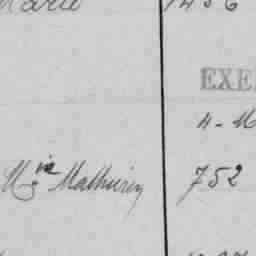 Marie 1456
EXE
4-M
Mie Mathurin 752